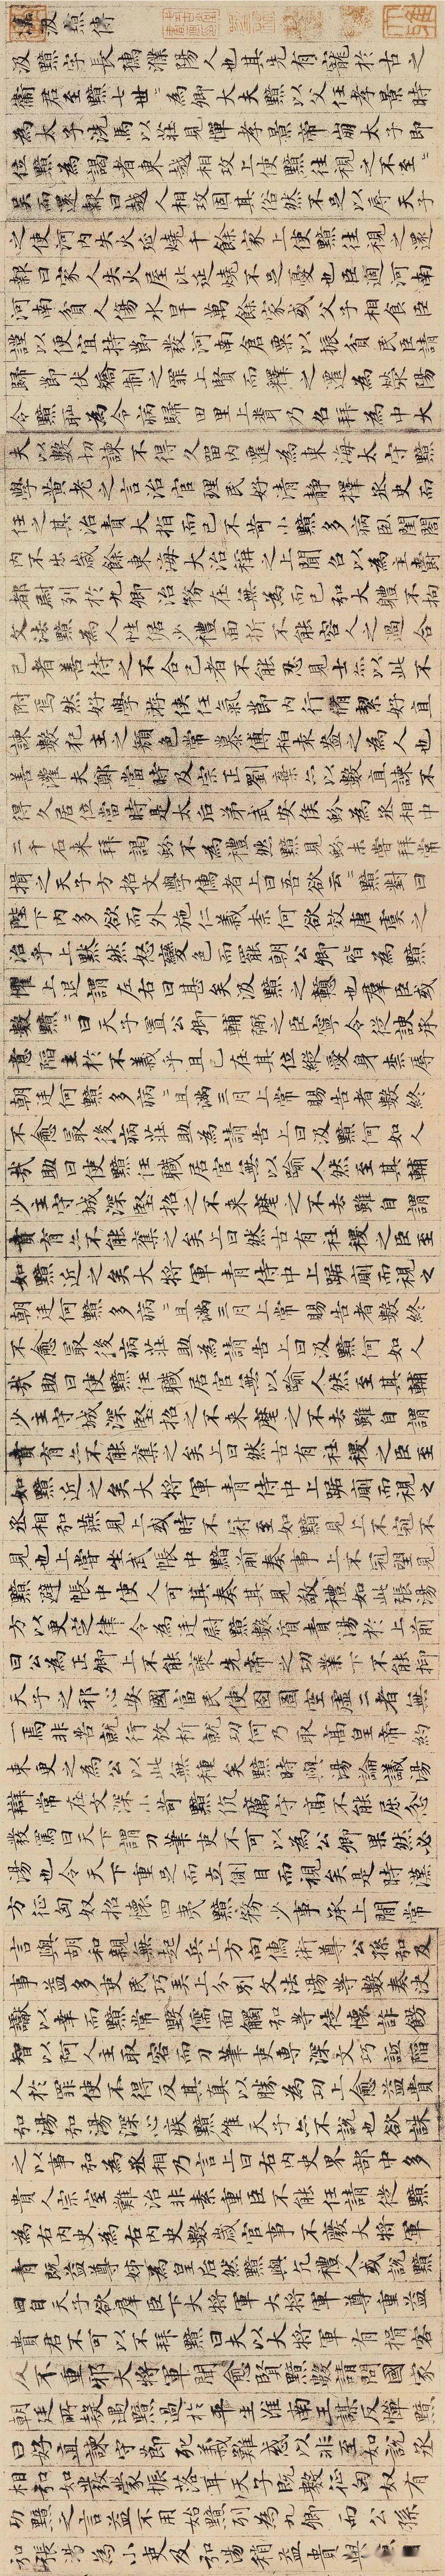 汲黯傳
汲黯字長孺濮陽人也其先有寵於古之
衛君至黯七世=為卿大夫黯以父任孝景時
為太子洗馬以莊見憚孝景帝崩太子即
位黯為謁者東越相攻上使黯往視之不至=
吳而還報曰越人相攻固其俗然不足以辱天子
之使河內失火延燒千餘家上使黯往視之還
報曰家人失火屋比延燒不足憂也臣過河南
河南貧人傷水旱萬餘家或父子相食臣
謹以便宜持節發河南倉粟以振貧民臣請
歸節伏矯制之罪上賢而釋之遷為滎陽
令黯恥為令病歸田里上聞乃召拜為中大
夫以數切諫不得久留內遷為東海太守黯
學黃老之言治官理民好清靜擇丞史而
任之其治責大指而已不苛小黯多病臥閨閤
內不出歲餘東海大治稱之上聞召以為主爵
都尉列於九卿治務在無為而已弘大體不拘
文法黯為人性倨少禮面折不能容人之過合
己者善待之不合己者不能忍見士亦以此不
附焉然好學游俠任氣節內行脩絜好直
諫數犯主之顏色常慕傅柏袁盎之為人也
善灌夫鄭當時及宗正劉棄亦以數直諫不
得久居位當時是太后弟武安侯蚡為丞相中
二千石來拜謁蚡不為禮然黯見蚡未嘗拜常
揖之天子方招文學儒者上曰吾欲云=黯對曰
陛下內多欲而外施仁義柰何欲效唐虞之
治乎上默然怒變色而罷朝公卿皆為黯
懼上退謂左右曰甚矣汲黯之戇也群臣或
數黯=曰天子置公卿輔弼之臣寧令從諛承
意陷主於不義乎且已在其位縱愛身柰辱
朝廷何黯多病=且滿三月上常賜告者數終
不愈最後病莊助為請告上曰汲黯何如人
哉助曰使黯任職居官無以踰人然至其輔
少主守城深堅招之不來麾之不去雖自謂
賁育亦不能奪之矣上曰然古有社稷之臣至
如黯近之矣大將軍青侍中上踞廁而視之
朝廷何黯多病=且滿三月上常賜告者數終
不愈最後病莊助為請告上曰汲黯何如人
哉助曰使黯任職居官無以踰人然至其輔
少主守城深堅招之不來麾之不去雖自謂
賁育亦不能奪之矣上曰然古有社稷之臣至
如黯近之矣大將軍青侍中上踞廁而視之
丞相弘燕見上或時不冠至如黯見上不冠不
見也上嘗坐武帳中黯前奏事上不冠望見
黯避帳中使人可其奏其見敬禮如此張湯
方以更定律令為廷尉黯數質責湯於上前
曰公為正卿上不能襃先帝之功業下不能抑
天子之邪心安國富民使囹圄空虛二者無
一焉非苦就行放析就功何乃取高皇帝約
束更之為公以此無種矣黯時與湯論議湯
辯常在文深小苛黯伉厲守高不能屈忿
發罵曰天下謂刀筆吏不可以為公卿果然必
湯也令天下重足而立側目而視矣是時漢
方征匈奴招懷四夷黯務少事承上閒常
言與胡和親無起兵上方向儒術尊公孫弘及
事益多吏民巧弄上分別文法湯等數奏決
讞以幸而黯常毀儒面觸弘等徒懷詐飾
智以阿人主取容而刀筆吏專深文巧詆陷
人於罪使不得反其真以勝為功上愈益貴
弘湯弘湯深心疾黯唯天子亦不說也欲誅
之以事弘為丞相乃言上曰右內史界部中多
貴人宗室難治非素重臣不能任請徙黯
為右內史為右內史數歲官事不廢大將軍
青既益尊姊為皇后然黯與亢禮人或說黯
曰自天子欲群臣下大將軍大將軍尊重益
貴君不可以不拜黯曰夫以大將軍有揖客
反不重邪大將軍聞愈賢黯數請問國家
朝廷所疑遇黯過於平生淮南王謀反憚黯
曰好直諫守節死義難惑以非至如說丞
相弘如發蒙振落耳天子既數征匈奴有
功黯之言益不用始黯列為九卿而公孫
弘張湯為小吏及弘湯稍益貴與